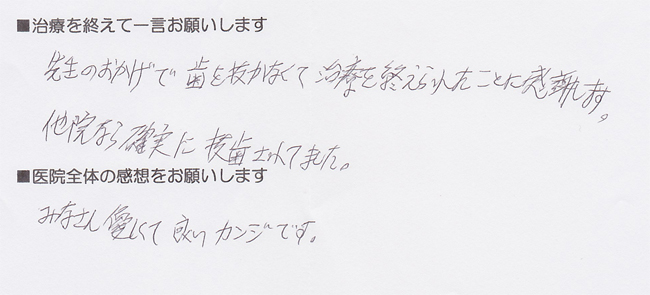 ■治療を終えて一言お願いします
先生のおかげで歯を抜かなくて治療を終えられたことに感謝します。
他院なら確実に抜歯されてました。
■医院全体の感想をお願いします
みなさん優しくて良いカンジです。